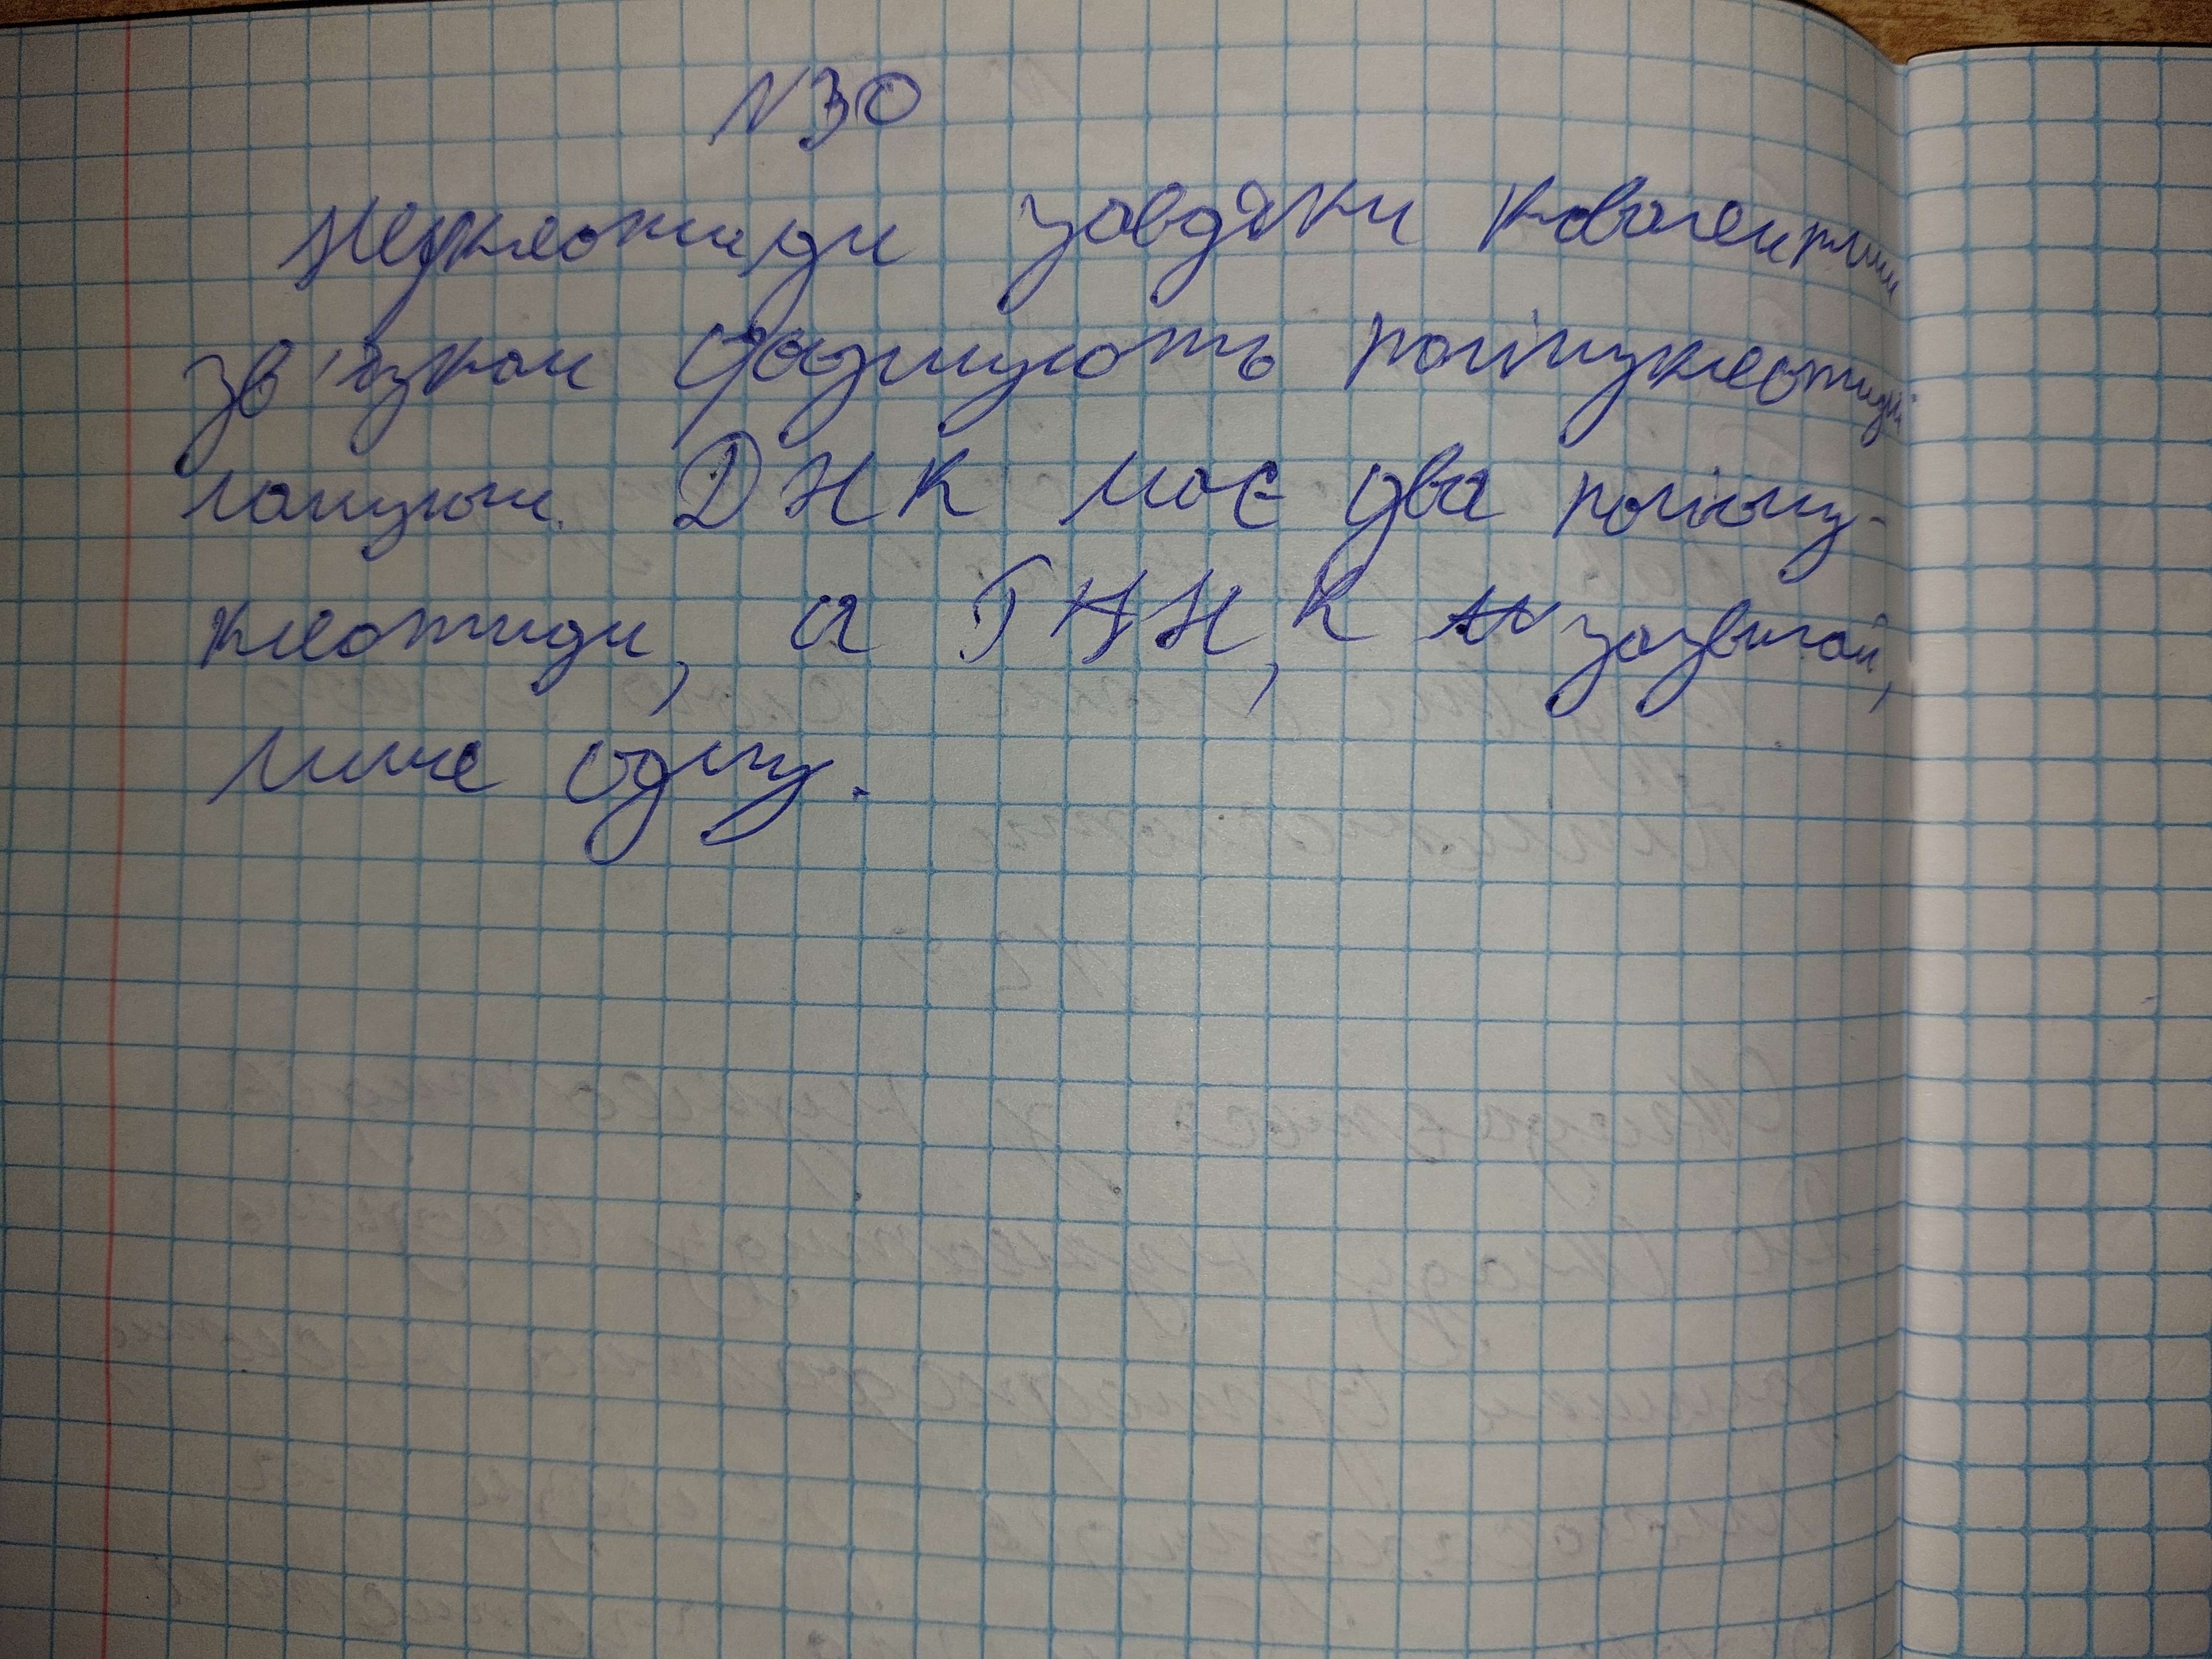 N30
Нуклеотиди завдяки ковалентним
зв'язкам формують полінуклеотидні
ланцюги. ДНК має два поліну-
клеотиди, а РНК, зазвичай,
лише одну.